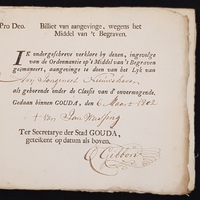 Pro Deo. Billiet van aangevinge, wegens het
Middel van 't Begraven.
IK ondergeschreve verklare by desen, ingevolge
van de Ordonnantie op 't Middel van 't Begraven
geëmaneert, aangevinge te doen van het Lyk van
als gehorende onder de Classis van d' onvermogende.
Gedaan binnen GOUDA, den 6 Maart 1802
Jan
Ter Secretarye der Stad GOUDA,
geteikent op datum als boven.